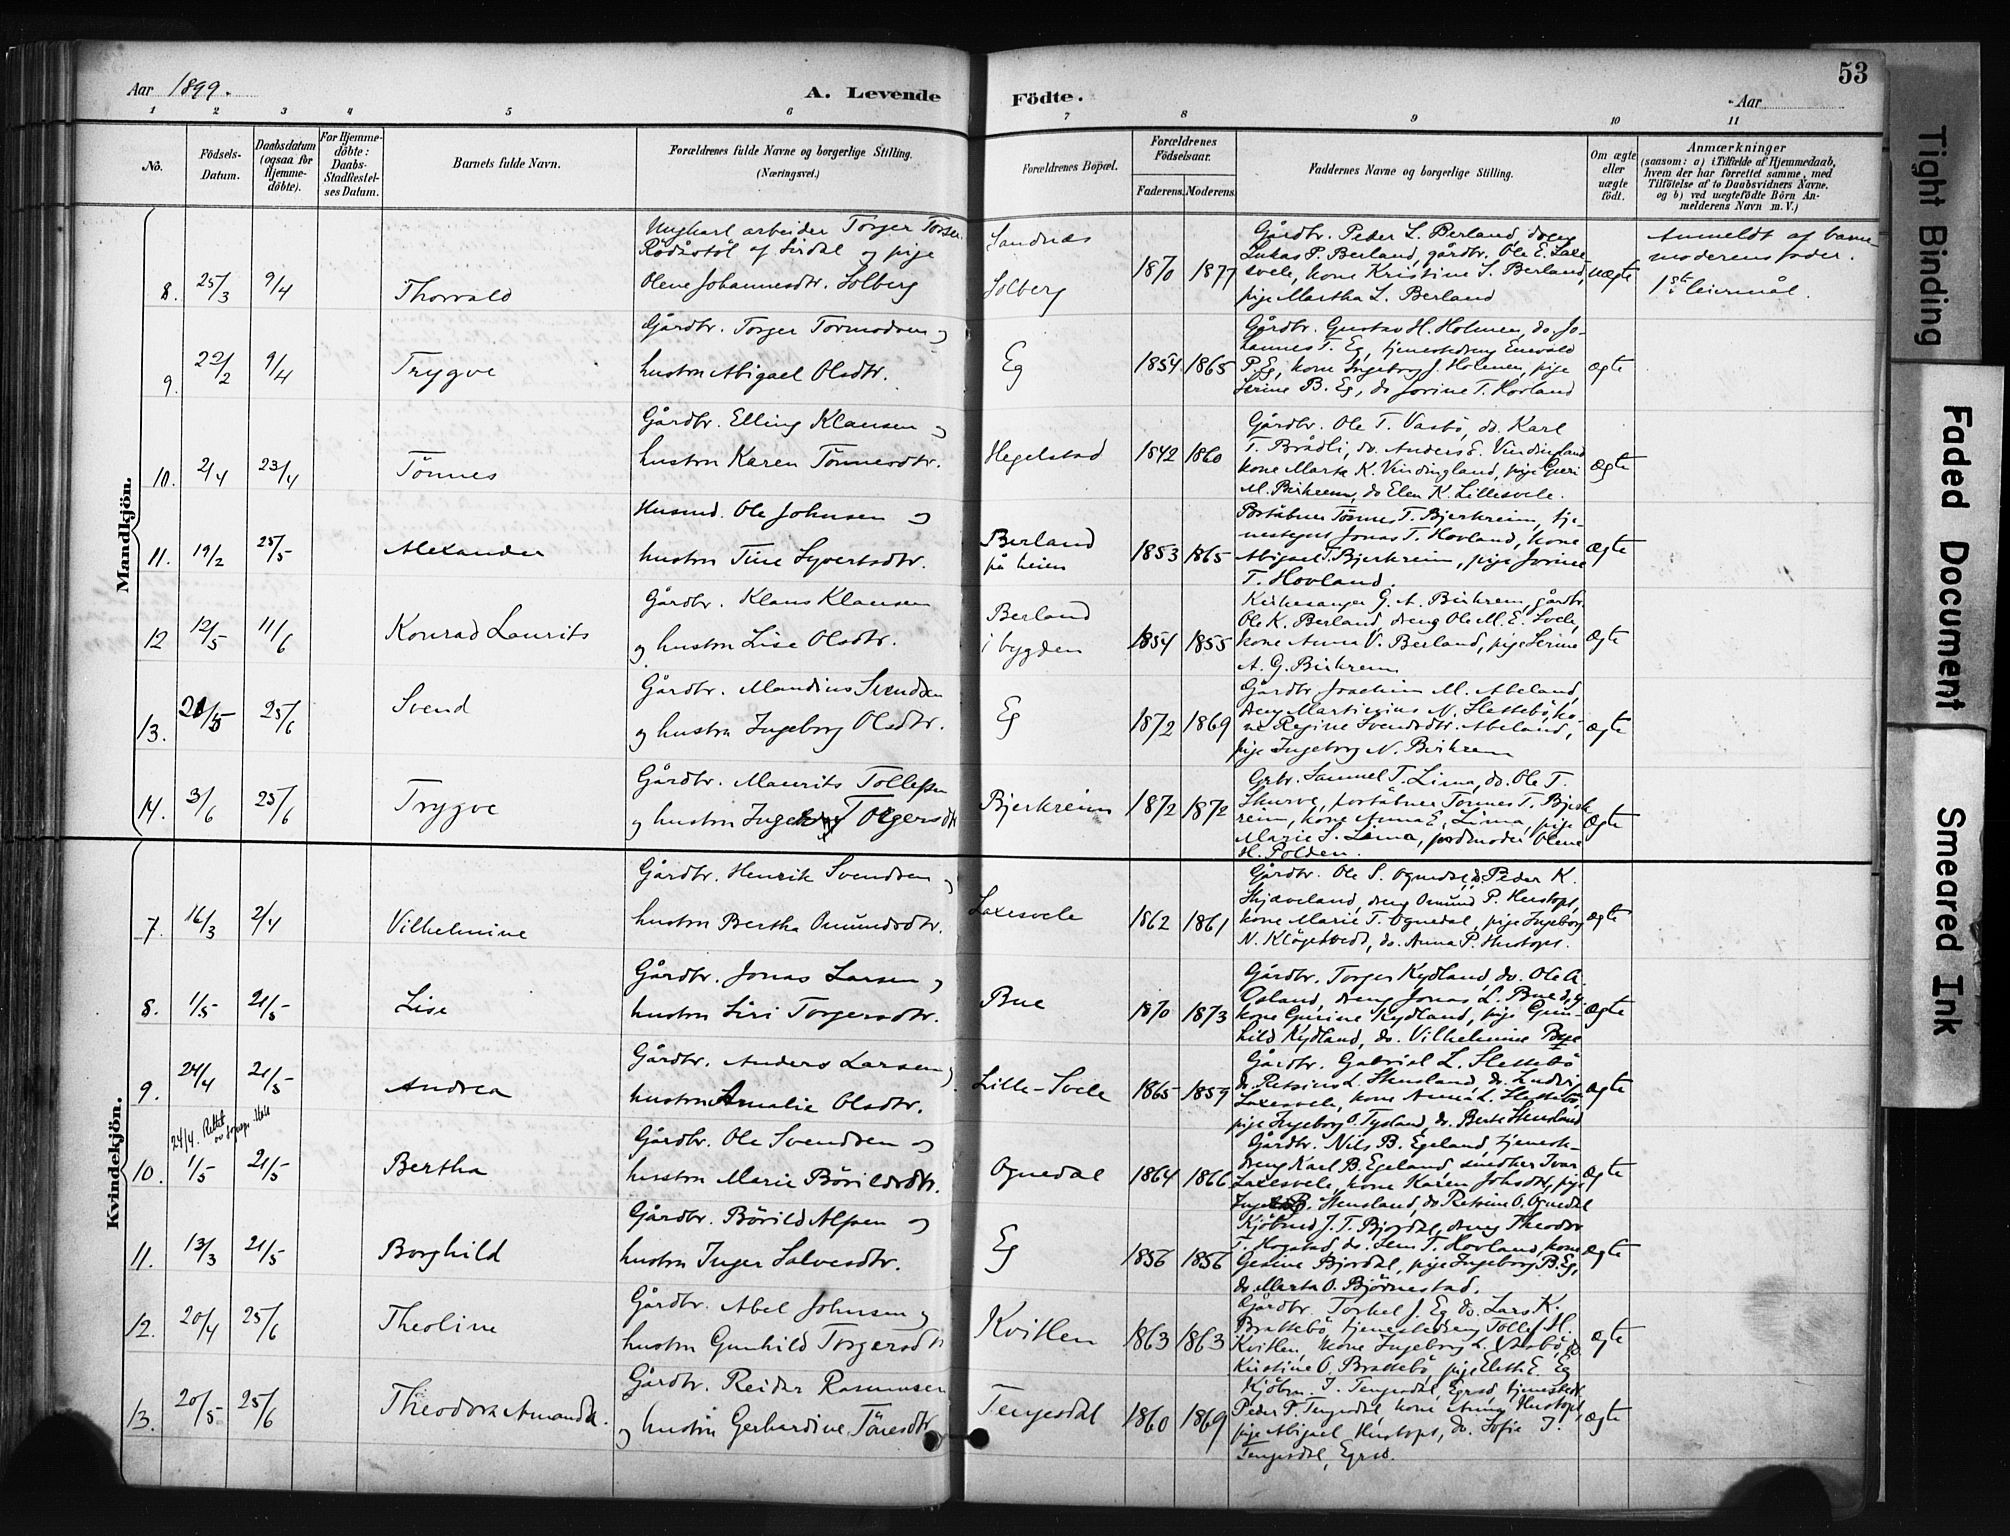 53
Aar 1899.
A. Levende Födte.
Aar
1 2 3 4 5 6 7 8 9 10 11
No.
Födsels-Datum.
Daabsdatum (ogsaa for Hjemme-döbte).
For Hjemme-döbte: Daabs-Stadfæstel-ses Datum.
Barnets fulde Navn.
Forældrenes fulde Navne og borgerlige Stilling.
(Næringsvei.)
Forældrenes Bopæl.
Forældrenes Födselsaar.
Faderens. Moderens.
Faddernes Navne og borgerlige Stilling.
Om ægte eller uægte födt.
Anmærkninger
(saasom: a) i Tilfælde af Hjemmedaab, hvem der har forrettet samme, med Tilföielse af to Daabsvidners Navne. og b) ved uægtefödte Börn Anmelderens Navn m. V.)
Mandkjön.
Ungkarl arbeider Torger Torsen
Rödåstöl af Sirdal og pige
8. 25/3 9/4 Thorvald Olene Johannesdtr. Solberg
Sandnes
Solberg
1870 1877
Gårdbr. Peder L. Berland, dreng
Lukas P. Berland, gårdbr. Ole E. Laxe-
svele, kone Kristine S. Berland,
pige Martha L. Berland
uægte
Anmeldt af barne-
moderens fader.
1ste leiermål.
Gårdbr. Torger Tormodsen og
9. 22/2 9/4 Trygve hustru Abigael Olsdtr.
Eg 1854 1865
Gårdbr. Gustav H. Holmen, do. Jo-
hannes T. Eg, tjenestedreng Enevald
P. Eg, kone Ingeborg J. Holmen, pige
Serine B. Eg, do Jorine T. Hovland
ægte
Gårdbr. Elling Klausen og
10. 2/4 23/4 Tönnes hustru Karen Tönnesdtr.
Hegelstad 1842 1860
Gårdbr. Ole T. Vasbö, do. Karl
T. Brådli, do. Anders E. Vindingland
kone Marta K. Vindingland, pige Guri
M. Birkrem, do Elen K. Lillesvele.
ægte
Husmd. Ole Johnsen og
11. 19/2 25/5 Alexander hustru Tine Syvertsdtr.
Berland
på heien
1853 1865
Poståbner Tönnes T. Bjerkreim, tje-
nestegut Jonas T. Hovland, kone
Abigael T. Bjerkreim, pige Jorine
T. Hovland.
ægte
Gårdbr. Klaus Klausen
12 12/5 11/6 Konrad Laurits og hustru Lise Olsdtr.
Berland
i bygden
1854 1855
Kirkesanger G. A. Birkrem, gårdbr.
Ole K. Berland, dreng Ole M. E. Svele,
kone Anna V. Berland, pige Serine
A. G. Birkrem
ægte
Gårdbr. Mandius Svendsen
13. 21/5 25/6 Svend og hustru Ingeborg Olsdtr.
Eg 1872 1869
Gårdbr. Joachim M. Abeland,
dreng Martinius N. Slettebö, ko-
ne Regine Svendsdtr. Abeland,
pige Ingeborg N. Birkrem
ægte
Gårdbr. Maurits Tollefsen
14. 3/6 25/6 Trygve og hustru Ingeborg Tolgersdtr
Bjerkreim 1872 1872
Grbr. Samuel T. Lima, do. Ole T.
Skurve, poståbner Tonnes T. Bjerk-
reim, kone Anna E. Lima, pige
Marie S. Lima, jordmoder Olene
H. Polden.
ægte
Kvindekjön.
Gårdbr. Henrik Svendsen og
7. 16/3 2/4 Vilhelmine hustru Bertha Omundsdtr.
Laxesvele 1862 1861
Gårdbr. Ole S. Ognedal, do Peder K.
Skjæveland, dreng Omund P. Hustoft,
kone Marie T. Ognedal, pige Ingeborg
N. Klögetvedt, do. Anna P. Hustoft.
ægte
Gårdbr. Jonas Larsen og
8. 1/5 21/5 Lise hustru Siri Torgersdtr.
Bue 1870 1873
Gårdbr. Torger Kydland, do. Ole A.
Osland, dreng Jonas L. Bue
kone Gurine Kydland, pige Gun-
hild Kydland, do. Vilhelmine Bue
ægte
Gårdbr. Anders Larsen og
9. 24/4 21/5 Andrea hustru Amalie Olsdtr.
Lille-Svele 1865 1859
Gårdbr. Gabriel L. Slettebö
do. Petrius L. Skensland, do. Ludvig
Laxesvele, kone Anna L. Slettebö,
pige Ingeborg O. Tysland, do. Berte Stensland
ægte
24/4. Rettet
Gårdbr. Ole Svendsen og
10. 1/5 21/5 Bertha hustru Marie Börildsdtr.
Ognedal 1864 1866
Gårdbr. Nils B. Egeland, tjeneste-
dreng Karl B. Egeland, Ivar
Laxesvele, kone Karen Johsdtr, pige
B. Stensland, do Petrine O. Ognedal
ægte
Gårdbr. Börild Alfsen og
11. 13/3 21/5 Borghild hustru Inger Salvesdtr.
Eg 1856 1856
Kjöbmd J. T. Bjordal, dreng Theodor
T. Hogstad, do. Jens T. Hovland, kone
Gesine Bjordal, pige Ingeborg B. Eg,
do. Marta O. Björnestad.
ægte
Gårdbr. Abel Johnsen og
12. 20/4 25/6 Theoline hustru Gunhild Torgersdtr
Kvitlen 1863 1863
Gårdbr. Torkel J. Eg do. Lars K.
Brattebö, tjenestedreng Tollef H.
Kvitlen, kone Ingeborg L. Vasbö, do
Kristine O. Brattebö, pige Eleth E. Eg
ægte
Gårdbr. Reider Rasmussen
13. 20/5 25/6 Theodora Amanda. og hustru Gerhardine Tönesdtr
Tengesdal 1860 1869
Kjöbm. J. Tengesdal, Egrsd, tjenestedr.
Peder P. Tengesdal, kone Anna Hustoft,
pige Abigael Hustoft, do. Sofie J.
Tengesdal, Egrsd.
ægte
Tight Binding
Faded Document
Smeared Ink